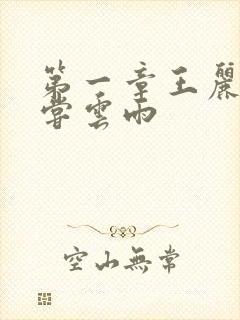 第一章王麗
嘗雲雨
空山無常